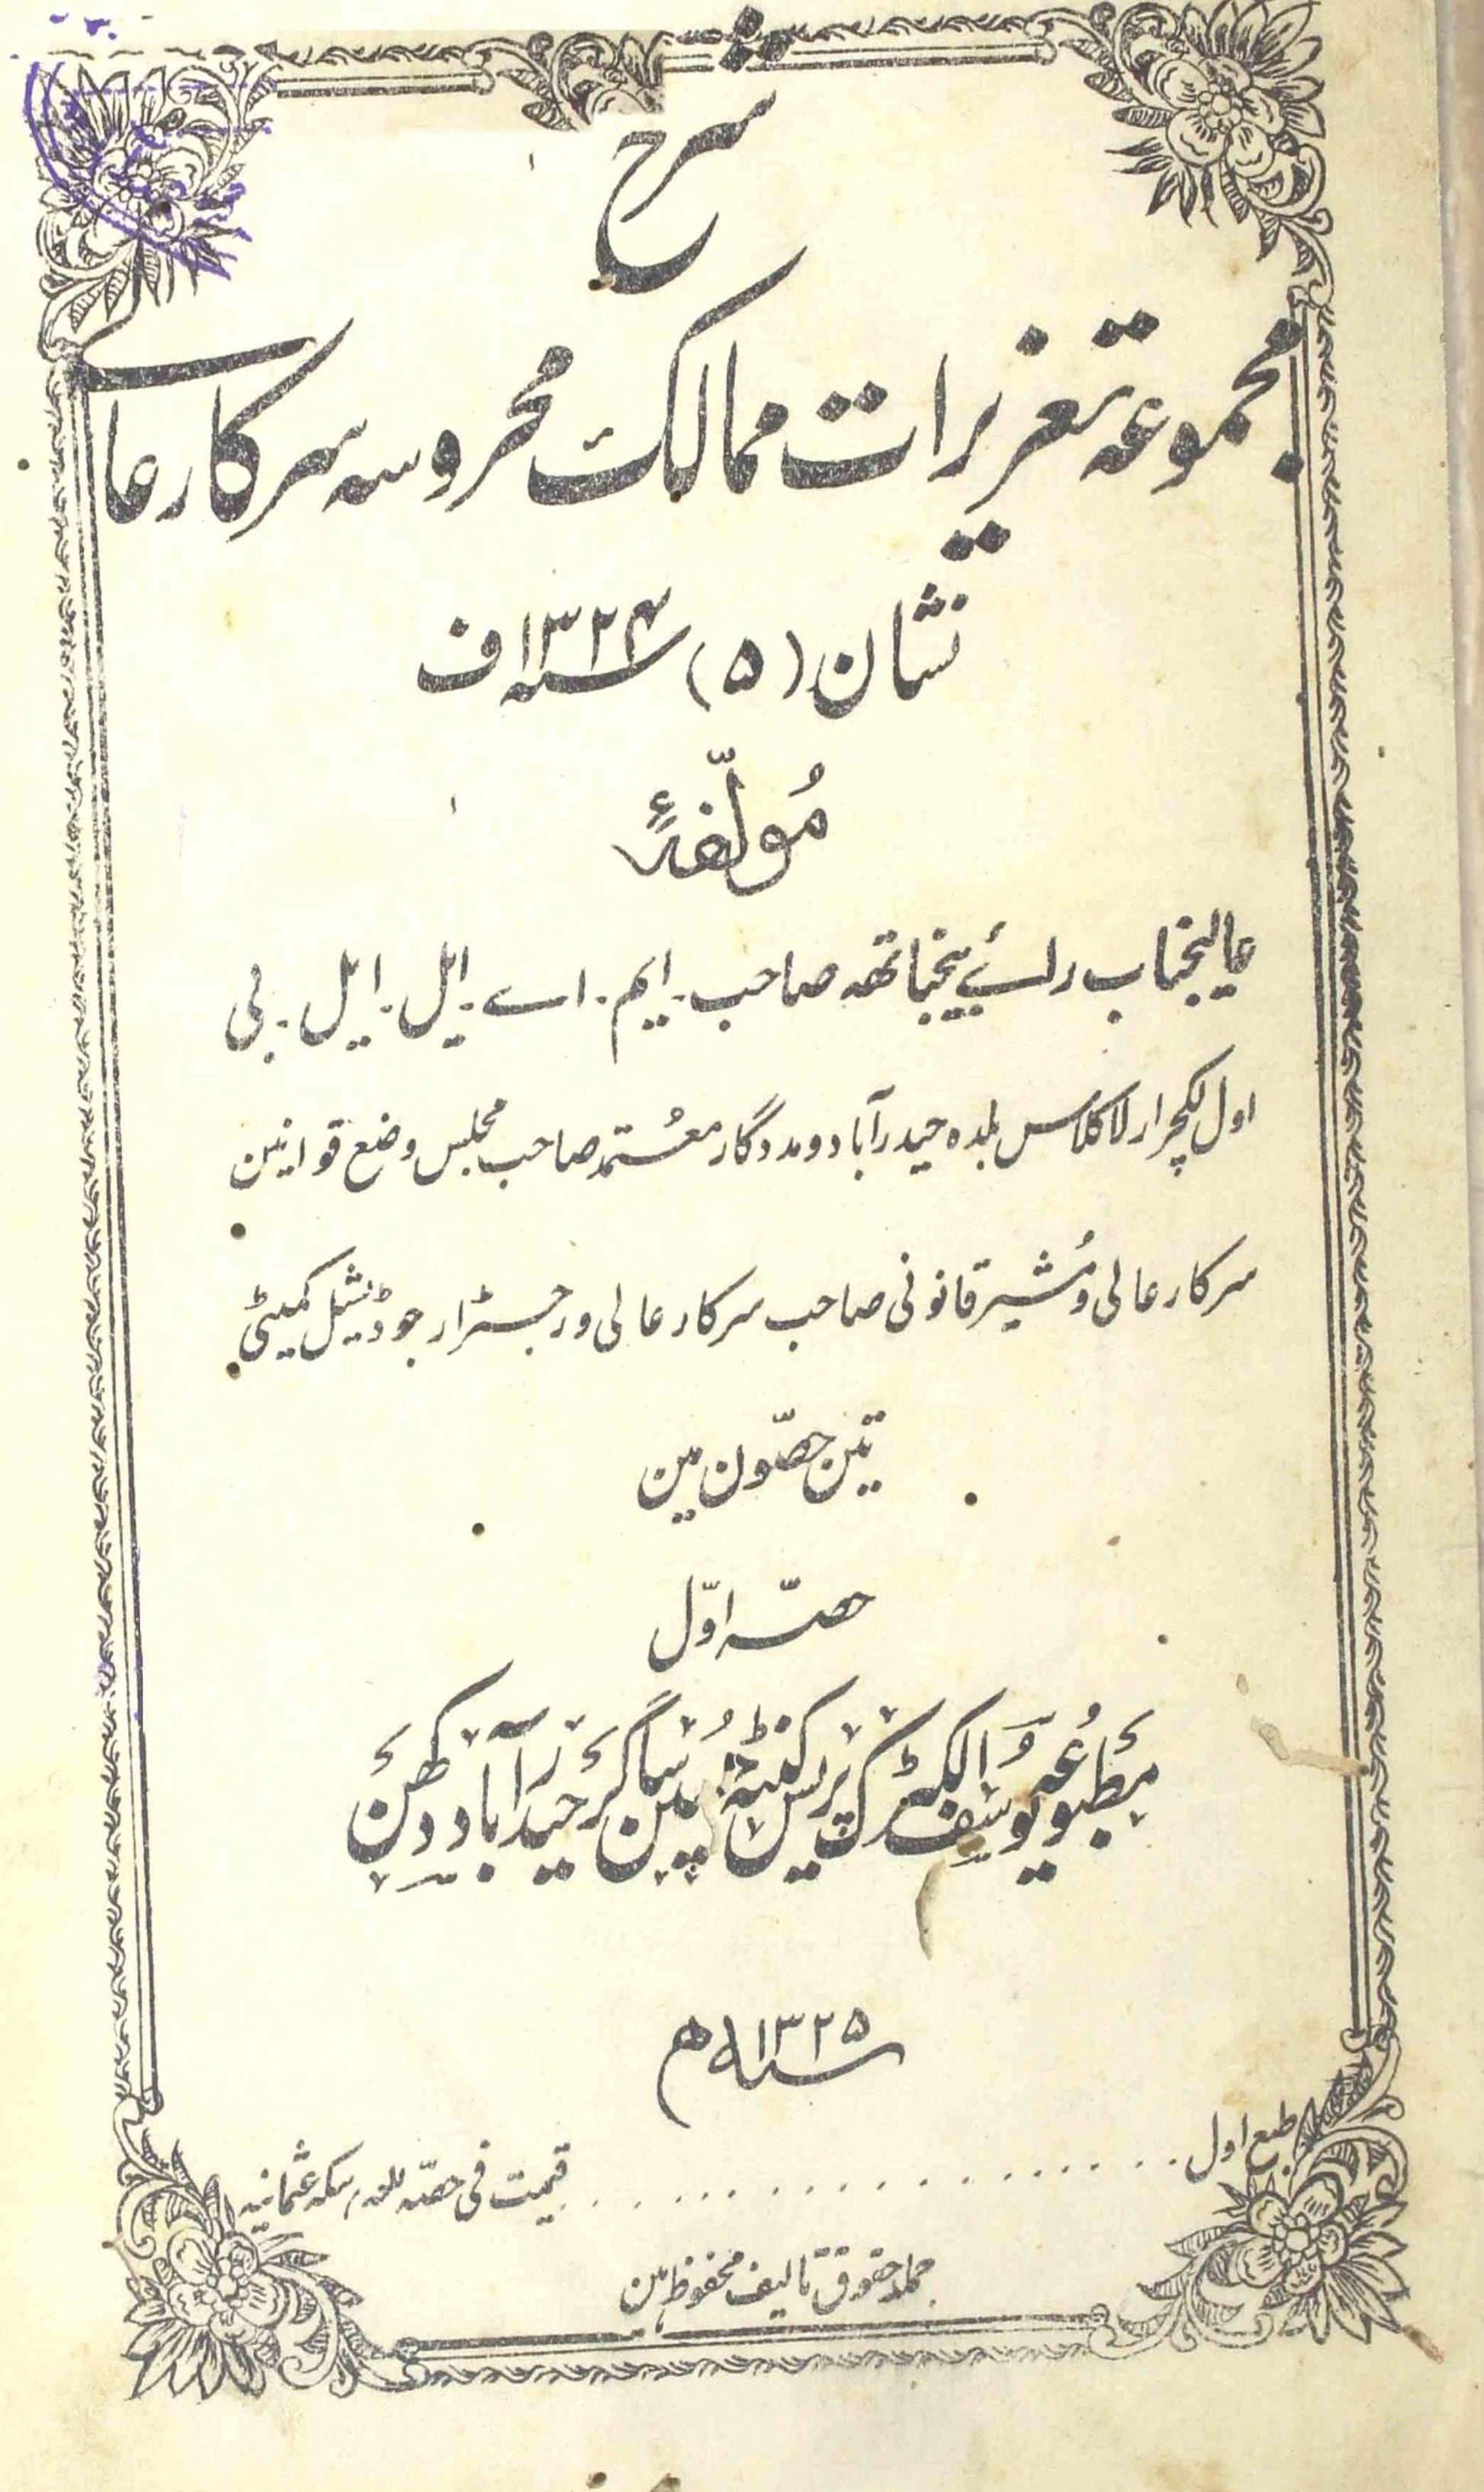 شرح
مجموعہ تعزیرات ممالک محروسہ سرکار عالے
نشان (۵) ۱۳۲۴ سنہ ف
مُولّفہٴ
عالیجناب رائے بیجناتھ صاحب. ایم. اے. ایل. ایل. بی
اول لکچرار لا کلاس بلدہ حیدرآباد و مددگار معتمد صاحب مجلس وضع قوانین
سرکار عالی و مُشیر قانونی صاحب سرکار عالی و رجسٹرار جوڈیشیل کمیٹی
تین حصّون مین
حصہ اوّل
مطبوعہ یوسفی الکٹرک پریس کٹہ حیدرآباد دکھن
۱۳۲۵ سنہ ھ
طبع اول . . . . . . . . . . . . . . . . . قیمت فی حصہ سکہ عثمانیہ
جملہ حقوق تالیف محفوظ ہین